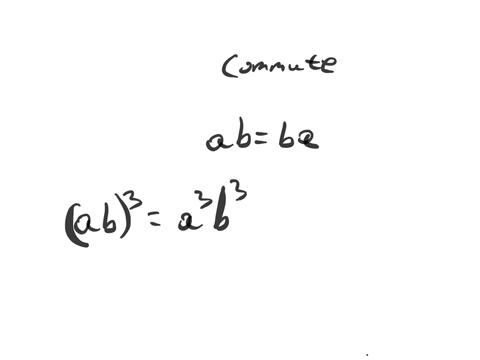 Commute
ab = ba
(ab)³ = a³b³